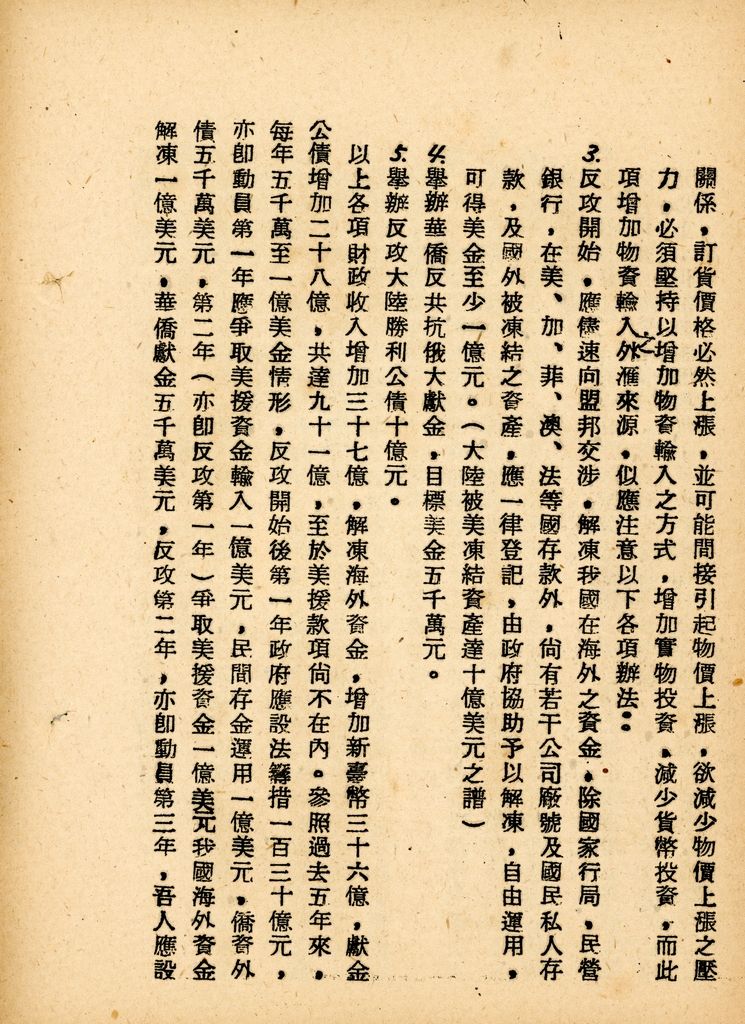 關係，訂貨價格必然上漲，並可能間接引起物價上漲，欲減少物價上漲之壓
力，必須堅持以增加物資輸入之方式，增加實物投資，減少貨幣投資，而此
項增加物資輸入之外滙來源，似應注意以下各項辦法：
3.反攻開始，應儘速向盟邦交涉，解凍我國在海外之資金，除國家行局，民營
銀行，在美、加、菲、澳、法等國存款外，尙有若干公司廠號及國民私人存
款，及國外被凍結之資產，應一律登記，由政府協助予以解凍，自由運用，
可得美金至少一億元。（大陸被美凍結資產達十億美元之譜）
4.舉辦華僑反共抗俄大獻金，目標美金五千萬元。
5.舉辦反攻大陸勝利公債十億元。
以上各項財政收入增加三十七億，解凍海外資金，增加新臺幣三十六億，獻金
公債增加二十八億，共達九十一億，至於美援款項尙不在內。參照過去五年來，
每年五千萬至一億美金情形，反攻開始後第一年政府應設法籌措一百三十億元，
亦卽動員第一年應爭取美援資金輸入一億美元，民間存金運用一億美元，僑資外
債五千萬美元，第二年（亦卽反攻第一年）爭取美援資金一億美元我國海外資金
解凍一億美元，華僑獻金五千萬美元，反攻第二年，亦卽動員第三年，吾人應設